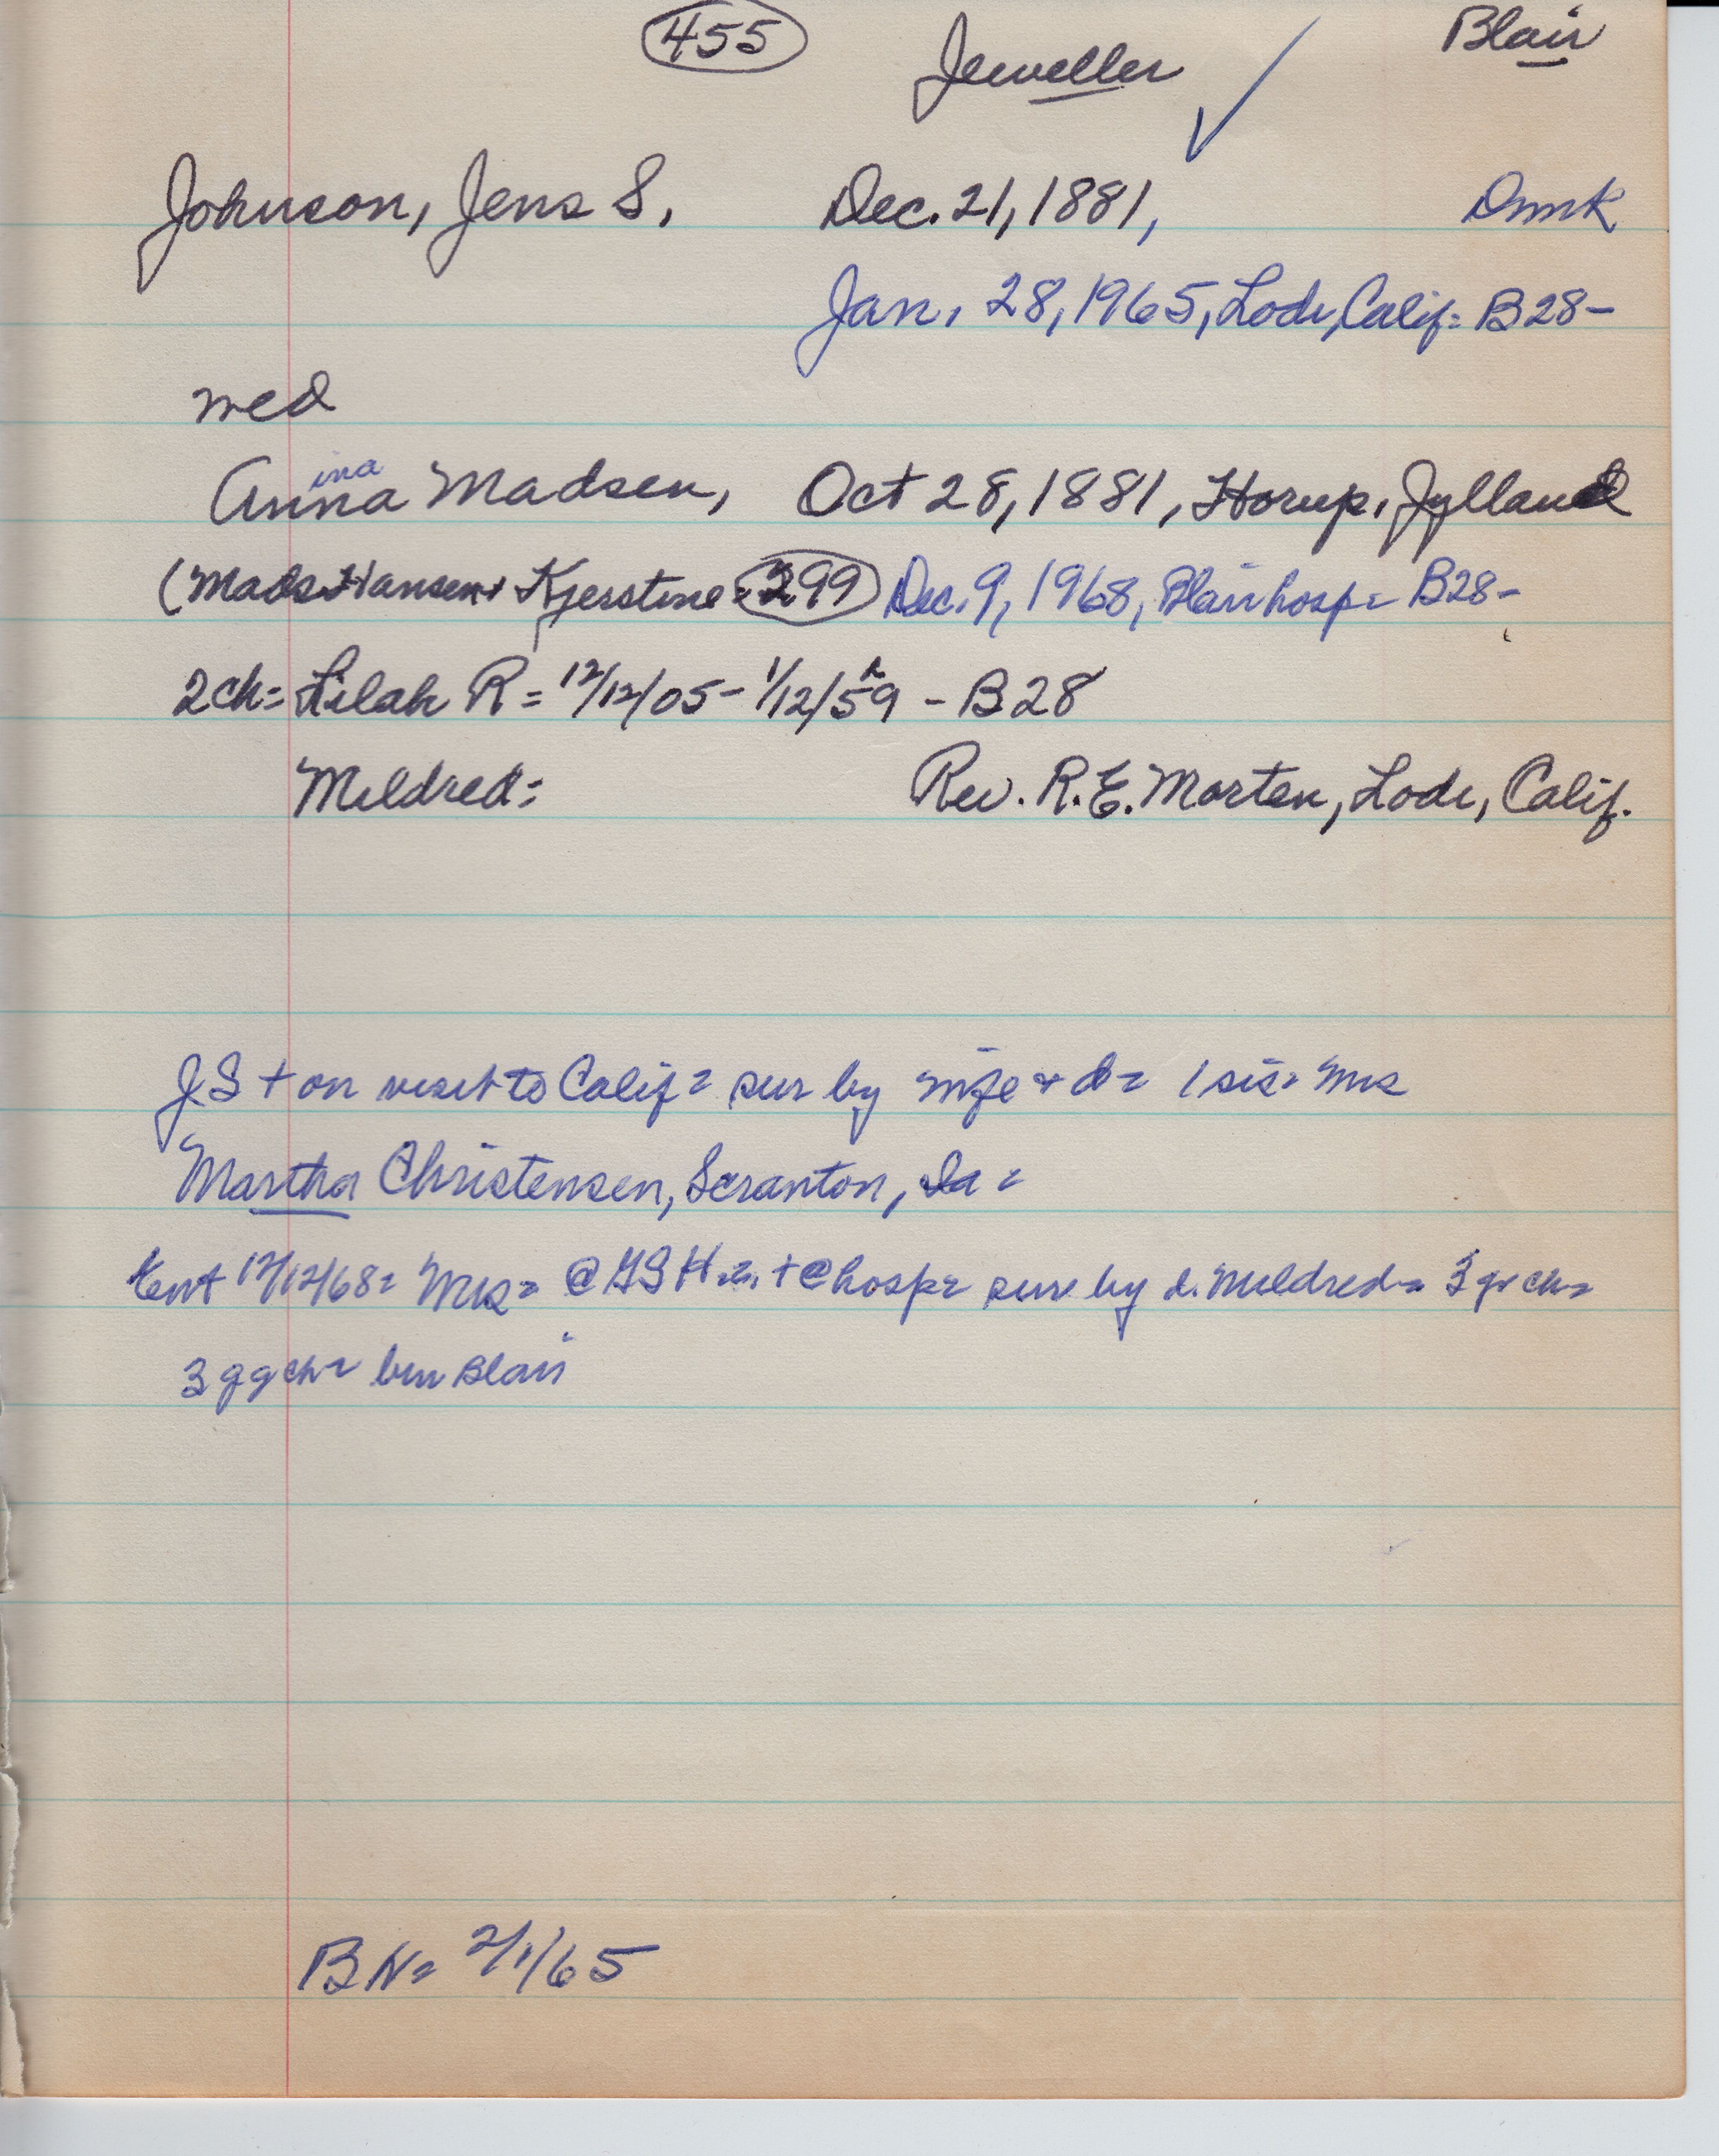 455 Jeweller ✓ Blair
Johnson, Jens S, Dec. 21, 1881, Dnmk
Jan, 28, 1965, Lodi, Calif= B28-
med
ina
Anna Madsen, Oct 28, 1881, Horup, Jylland
(Mads Hansen + Kjerstine = 299 Dec. 9, 1968, Blair hosp= B28-
2ch= Lilah R = 12/12/05 - 1/12/59 - B28
Mildred= Rev. R. E. Morten, Lodi, Calif.
JS + on visit to Calif= sur by wife + d= 1 sis= Mrs
Martha Christensen, Scranton, Ia =
Ent 12/12/68= Mrs= @ GSH + @ hosp= surv by d. Mildred= 3 gr ch=
3 ggch= bur Blair
BN= 2/1/65